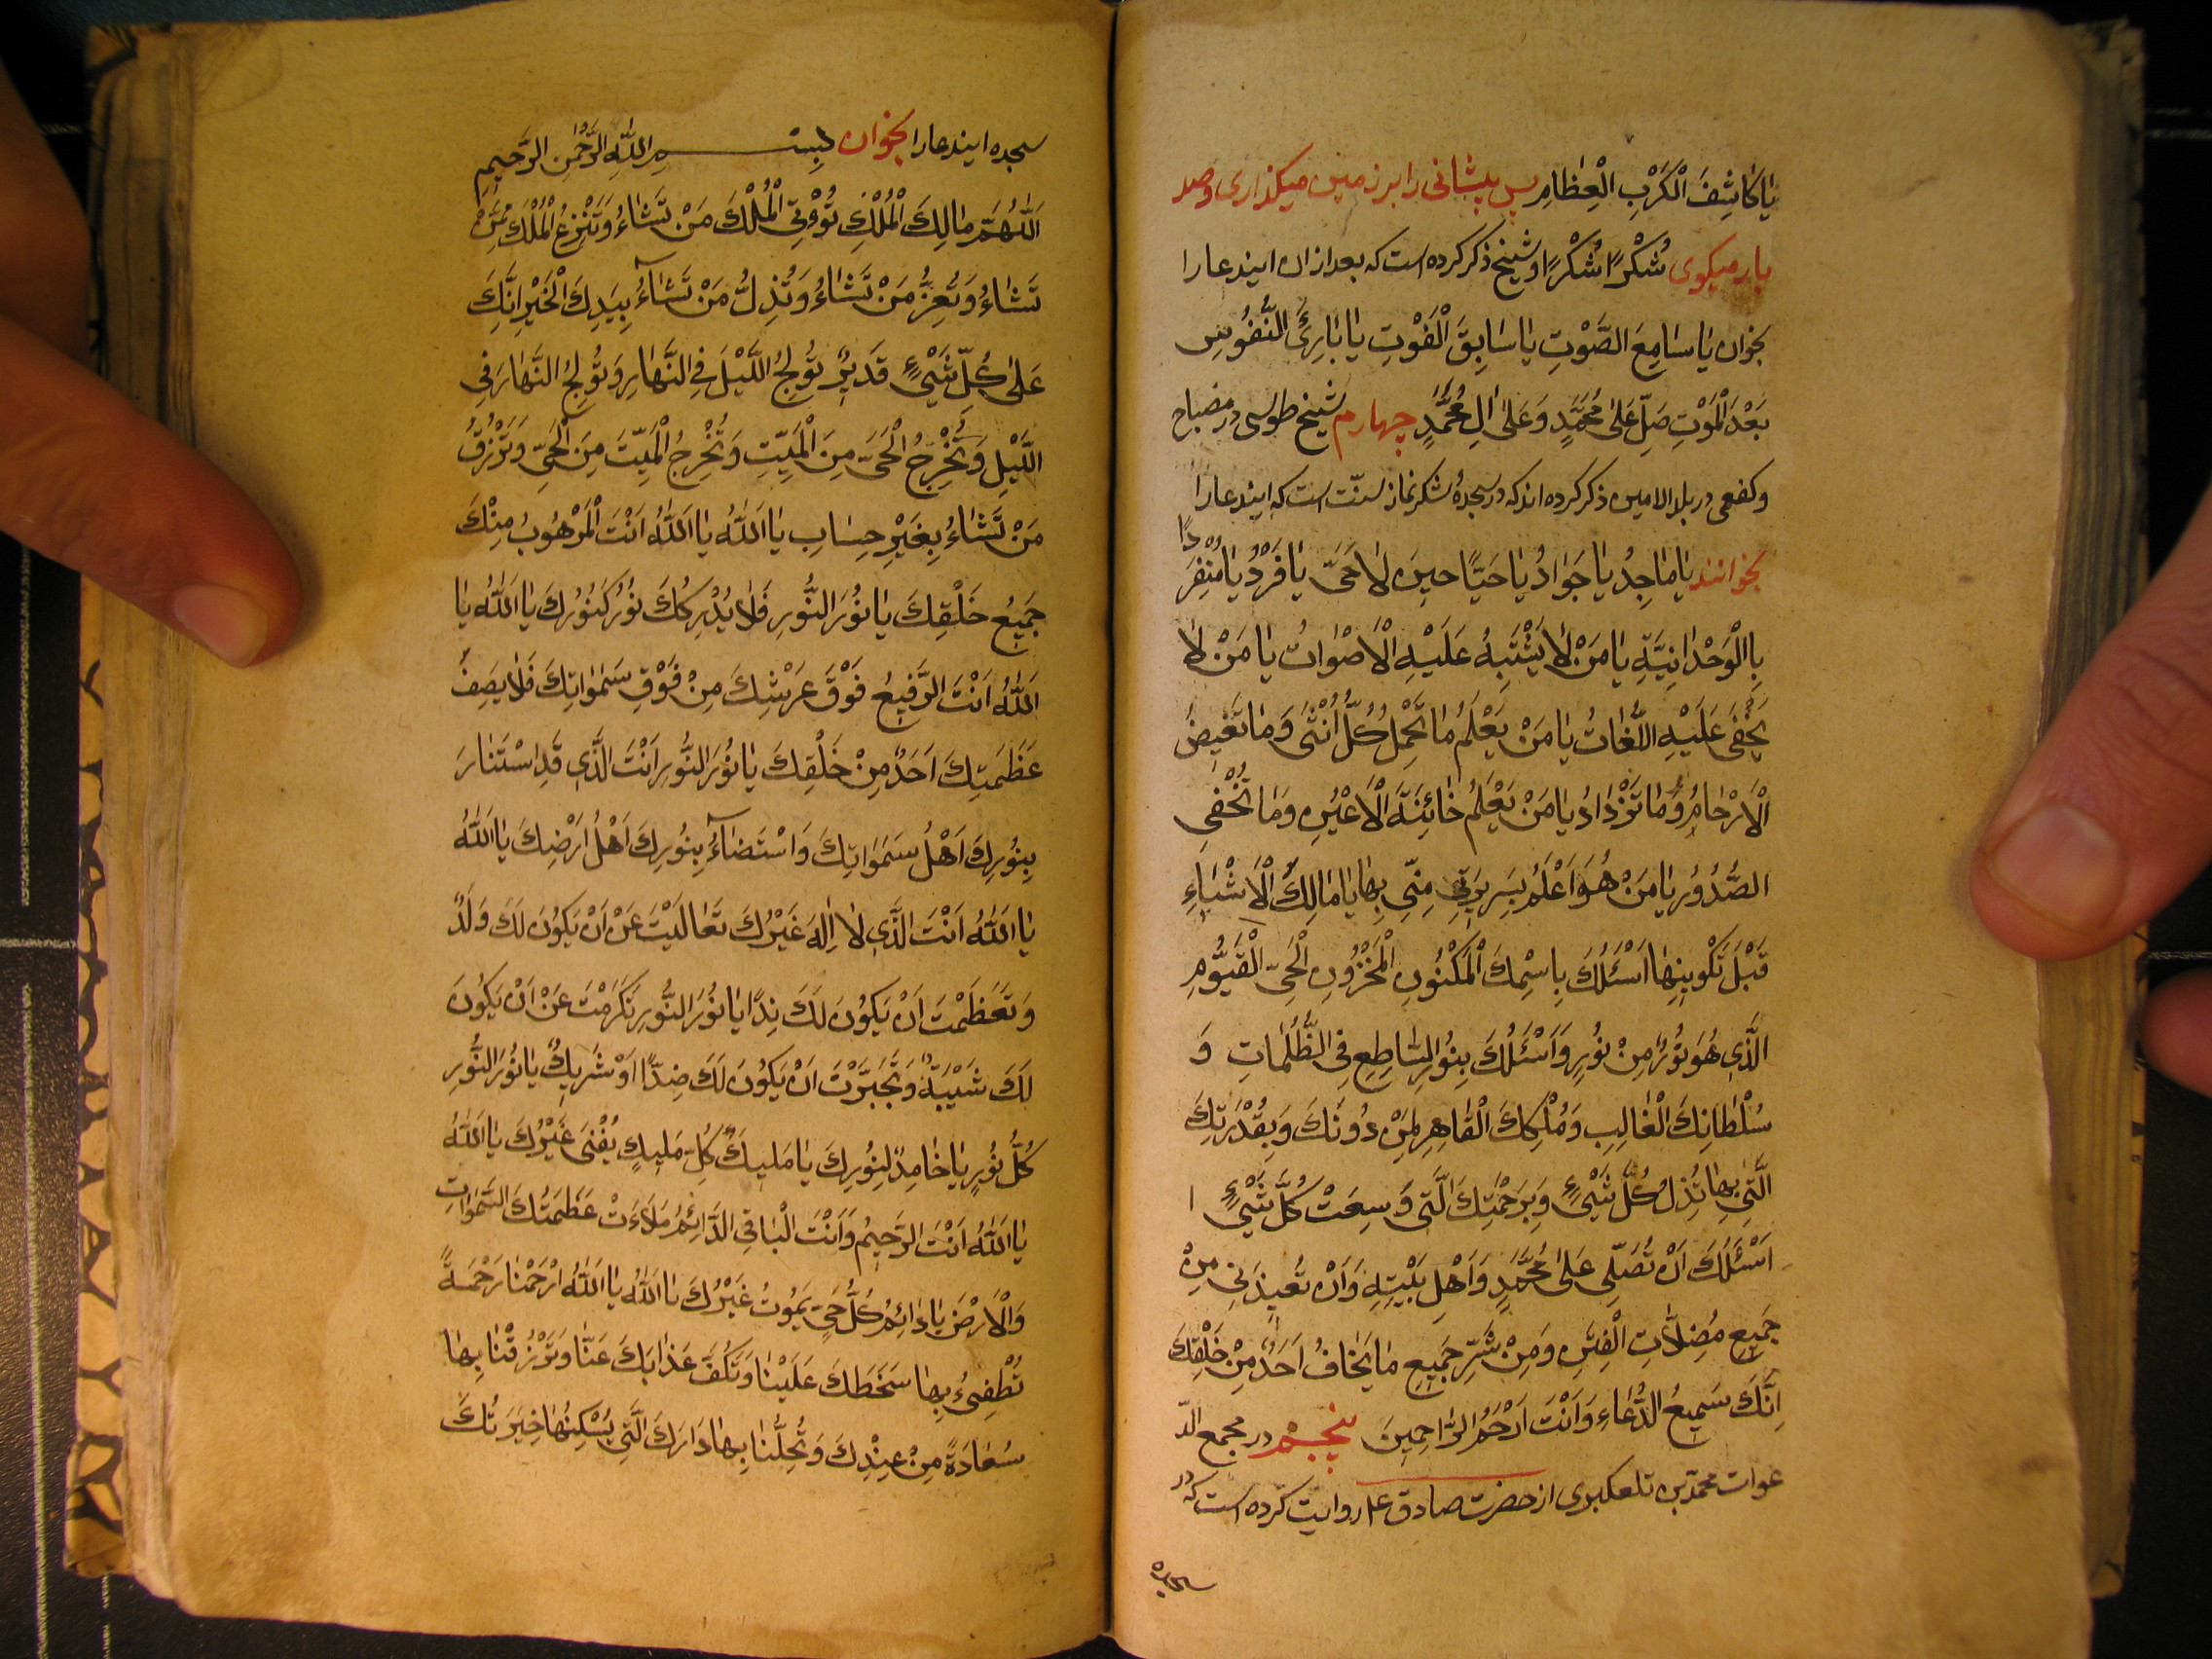 یا کاشِفَ الْکَرْبِ الْعِظامِ پس پیشانی را بر زمین میکذاری و صد
بار میکوی شُکْرًا شُکْرًا و شیخ ذکر کرده است که بعد از ان ایندعا را
بخوان یا سامِعَ الصَّوْتِ یا سابِقَ الْفَوْتِ یا بارِئَ النُّفُوسِ
بَعْدَ الْمَوْتِ صَلِّ عَلی مُحَمَّدٍ وَ عَلی الِ مُحَمَّدٍ چهارم شیخ طوسی در مصباح
و کفعمی در بلد الامین ذکر کرده اند که در سجدهٔ شکر نماز سنّت است که ایندعا را
بخوانند یا ماجِدُ یا جَوادُ یا حَیًّا حینَ لا حَیَّ یا فَرْدُ یا مُنْفَرِدًا
بِالْوَحْدانِیَّةِ یا مَنْ لا یَشْتَبِهُ عَلَیْهِ الْاَصْواتُ یا مَنْ لا
یَخْفی عَلَیْهِ اللُّغاتُ یا مَنْ یَعْلَمُ ما تَحْمِلُ کُلُّ اُنْثی وَ ما تَغیضُ
الْاَرْحامُ وَ ما تَزْدادُ یا مَنْ یَعْلَمُ خائِنَةَ الْاَعْیُنِ وَ ما تُخْفِی
الصُّدُورُ یا مَنْ هُوَ اَعْلَمُ بِسَریرَتی مِنّی بِها یا مالِکَ الْاَشْیاءِ
قَبْلَ تَکْوینِها اَسْئَلُکَ بِاسْمِکَ الْمَکْنُونِ الْمَخْزُونِ الْحَیِّ الْقَیُّومِ
الَّذی هُوَ نُورٌ مِنْ نُورٍ وَ اَسْئَلُکَ بِنُورِ السّاطِعِ فِی الظُّلُماتِ وَ
سُلْطانِکَ الْغالِبِ وَ مُلْکِکَ الْقاهِرِ لِمَنْ دُونَکَ وَ بِقُدْرَتِکَ
الَّتی بِها تُذِلُّ کُلَّ شَیْءٍ وَ بِرَحْمَتِکَ الَّتی وَسِعَتْ کُلَّ شَیْءٍ ا
اَسْئَلُکَ اَنْ تُصَلِّیَ عَلی مُحَمَّدٍ وَ اَهْلِ بَیْتِهِ وَ اَنْ تُعیذَنی مِنْ
جَمیعِ مُضِلّاتِ الْفِتَنِ وَ مِنْ شَرِّ جَمیعِ ما یَخافُ اَحَدٌ مِنْ خَلْقِکَ
اِنَّکَ سَمیعُ الدُّعاءِ وَ اَنْتَ اَرْحَمُ الرّاحِمینَ پنجـم در مجمع الدّ
عوات محمّد بن تلعکبری از حضرت صادق ع روایت کرده است که در
سجده
سجده ایندعا را بخوان بِسْـــمِ اللّٰهِ الرَّحْمٰنِ الرَّحیمِ
اَللّٰهُمَّ مالِکَ الْمُلْکِ تُؤْتِی الْمُلْکَ مَنْ تَشاءُ وَ تَنْزِعُ الْمُلْکَ مِمَّنْ
تَشاءُ وَ تُعِزُّ مَنْ تَشاءُ وَ تُذِلُّ مَنْ تَشآءُ بِیَدِکَ الْخَیْرُ اِنَّکَ
عَلی کُلِّ شَیْءٍ قَدیرٌ تُولِجُ اللَّیْلَ فِی النَّهارِ وَ تُولِجُ النَّهارَ فِی
اللَّیْلِ وَ تُخْرِجُ الْحَیَّ مِنَ الْمَیِّتِ وَ تُخْرِجُ الْمَیِّتَ مِنَ الْحَیِّ وَ تَرْزُقُ
مَنْ تَشاءُ بِغَیْرِ حِسابٍ یا اَللّٰهُ یا اَللّٰهُ اَنْتَ الْمَرْهُوبُ مِنْکَ
جَمیعُ خَلْقِکَ یا نُورَ النُّورِ فَلا یُدْرِکُکَ نُورٌ کَنُورِکَ یا اَللّٰهُ یا
اَللّٰهُ اَنْتَ الرَّفیعُ فَوْقَ عَرْشِکَ مِنْ فَوْقِ سَمٰواتِکَ فَلا یَصِفُ
عَظَمَتِکَ اَحَدٌ مِنْ خَلْقِکَ یا نُورَ النُّورِ اَنْتَ الَّذی قَدِ اسْتَنارَ
بِنُورِکَ اَهْلُ سَمَواتِکَ وَ اسْتَضآءَ بِنُورِکَ اَهْلُ اَرْضِکَ یا اَللّٰهُ
یا اَللّٰهُ اَنْتَ الَّذی لا اِلهَ غَیْرُکَ تَعالَیْتَ عَنْ اَنْ یَکُونَ لَکَ وَلَدٌ
وَ تَعَظَّمْتَ اَنْ یَکُونَ لَکَ نِدًّا یا نُورَ النُّورِ تَکَرَّمْتَ عَنْ اَنْ یَکُونَ
لَکَ شَبیهٌ وَ تَجَبَّرْتَ اَنْ یَکُونَ لَکَ ضِدًّا اَوْ شَریکٌ یا نُورَ النُّورِ
کُلُّ نُورٍ یا خامِدٌ لِنُورِکَ یا مَلیکُ کُلِّ مَلیکٍ یُفْنی غَیْرُکَ یا اَللّٰهُ
یا اَللّٰهُ اَنْتَ الرَّحیمُ وَ اَنْتَ الْباقِی الدّائِمُ مَلَاَتْ عَظَمَتُکَ السَّمٰواتِ
وَ الْاَرْضَ یا دائِمُ کُلُّ حَیٍّ یَمُوتُ غَیْرُکَ یا اَللّٰهُ یا اَللّٰهُ ارْحَمْنا رَحْمَةً
تُطْفِیءُ بِها سَخَطَکَ عَلَیْنا وَ تَکُفَّ عَذابَکَ عَنّا وَ تَرْزُقْنا بِها
سَعادَةً مِنْ عِنْدِکَ وَ تُحِلُّنا بِها دارَکَ الَّتی یَسْکُنُها خِیَرَتُکَ